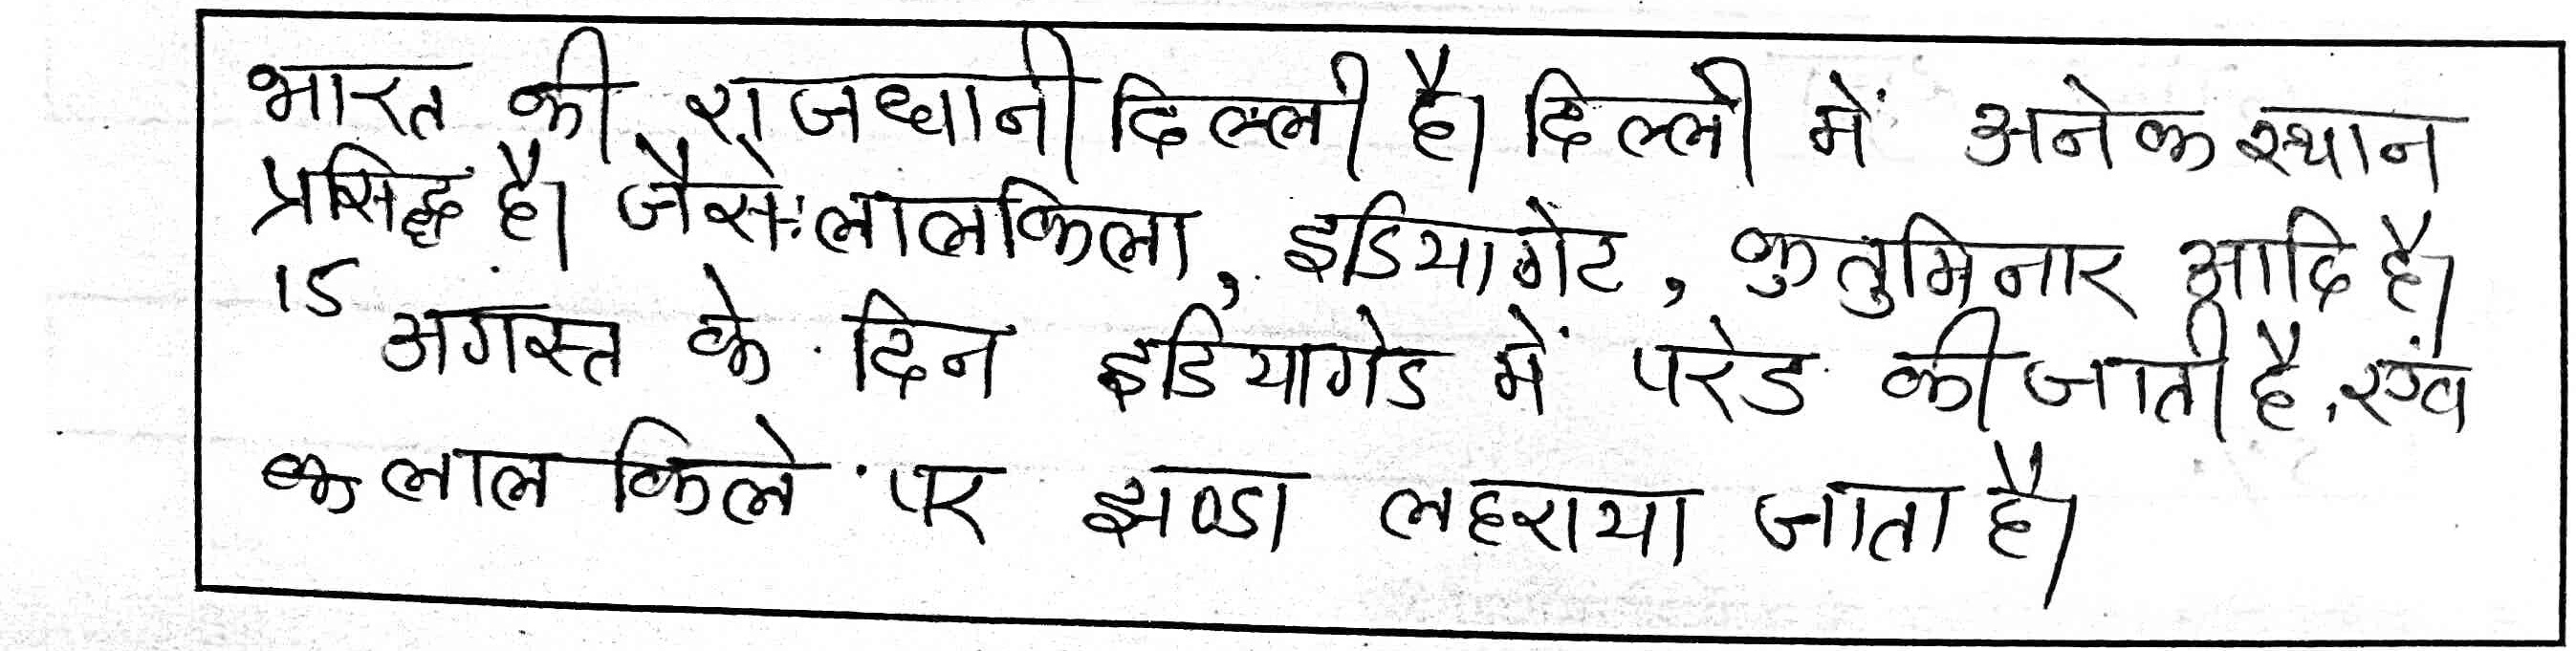 भारत की राजधानी दिल्ली है। दिल्ली में अनेक स्थान
प्रसिद्ध है। जैसे:लालकिला, इडियागेट, कुतुमिनार आदि है।
15 अगस्त के दिन इडियागेड में परेड की जाती है, एंव
क लाल किले पर झण्डा लहराया जाता है।